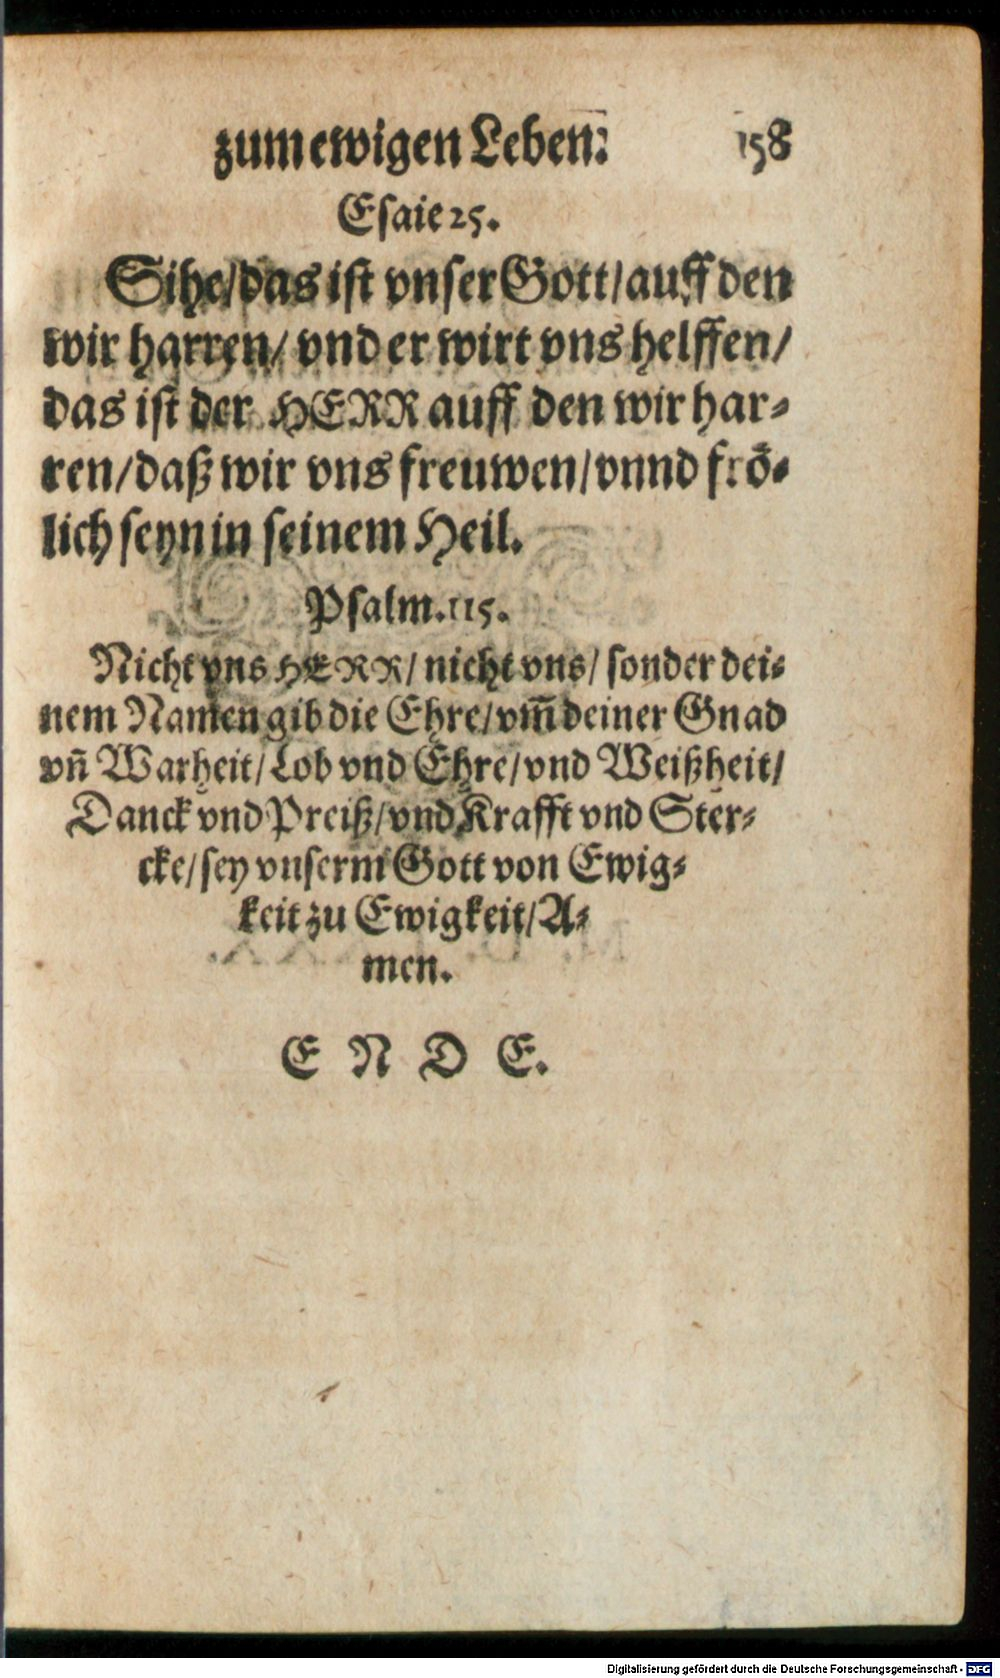 zum ewigen Leben. 158
Esaie 25.
Sihe/das ist vnser Gott/auff den
wir harren/ vnd er wirt vns helffen/
das ist der HERR auff den wir har-
ren/daß wir vns freuwen/vnnd frö-
lich seyn in seinem Heil.
Psalm.115.
Nicht vns HERR/ nicht vns/ sonder dei-
nem Namen gib die Ehre/vm̃ deiner Gnad
vñ Warheit/Lob vnd Ehre/vnd Weißheit/
Danck vnd Preiß/vnd Krafft vnd Ster-
cke/sey vnserm Gott von Ewig-
keit zu Ewigkeit/A-
men.
E N D E.
Digitalisierung gefördert durch die Deutsche Forschungsgemeinschaft - DFG